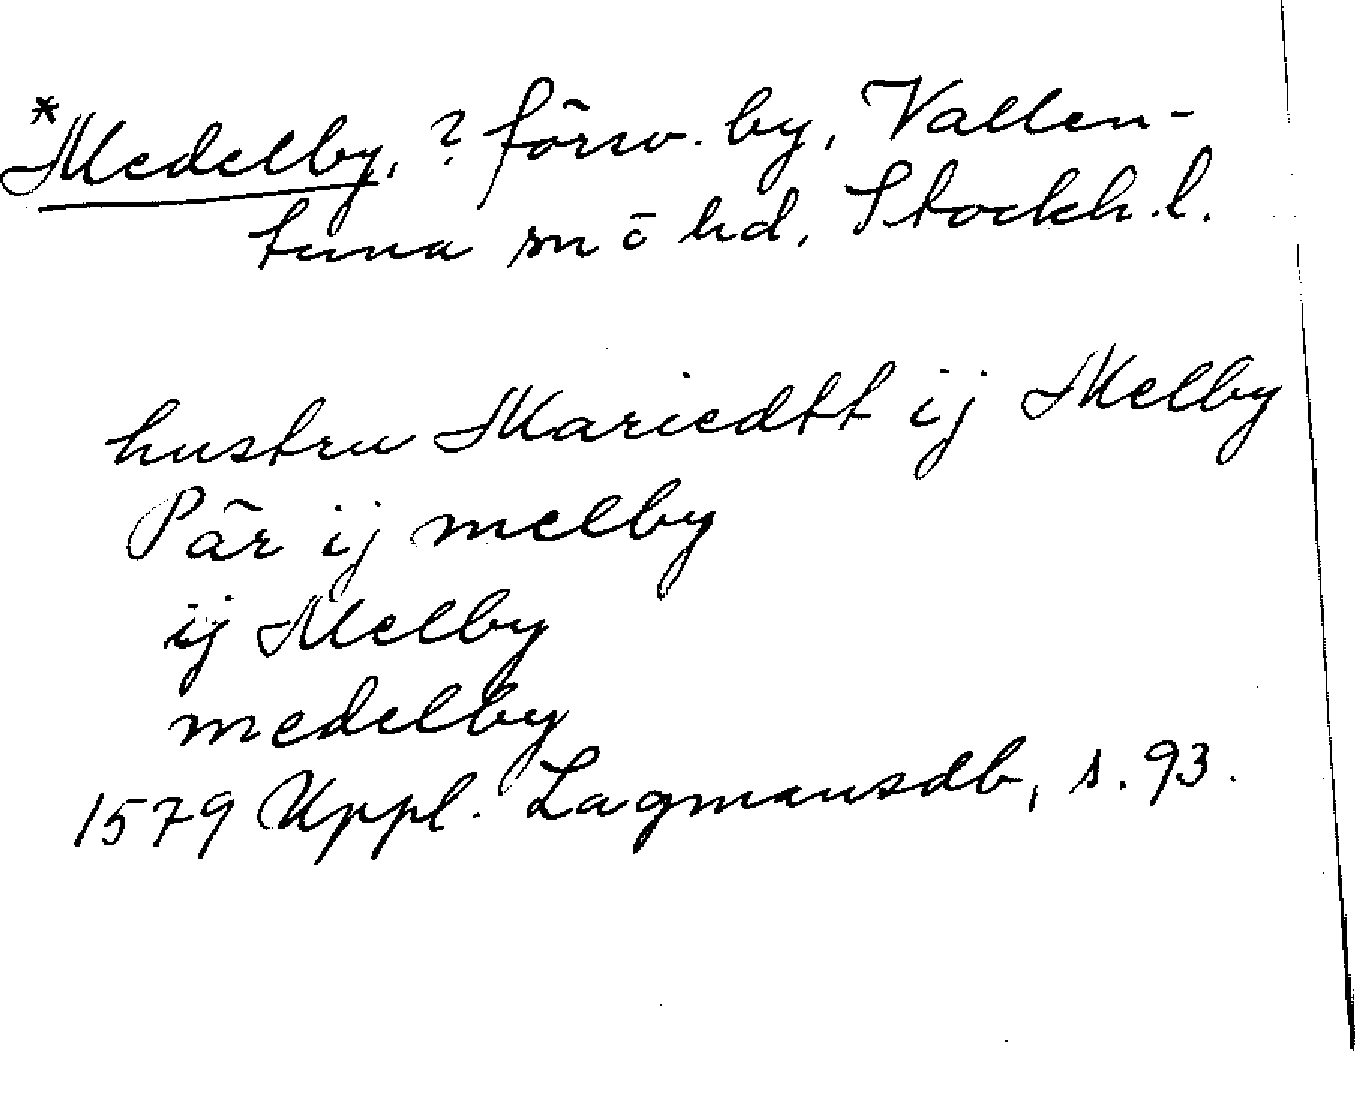 *Medelby, ? försv. by, Vallen-
tuna sn ö hd, Stockh. l.
hustru Mariedtt ij Melby
Pär ij melby
ij Melby
medelby
1579 Uppl. Lagmansdb, s. 93.